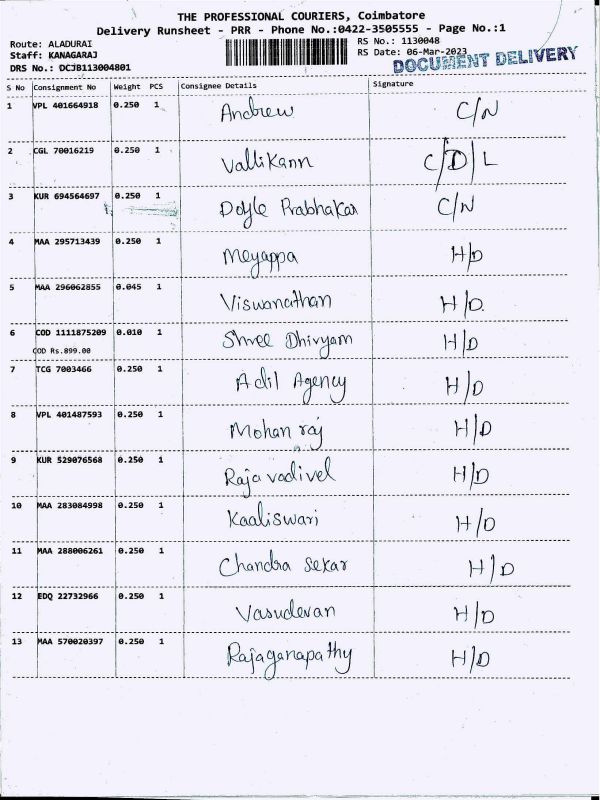 THE PROFESSIONAL COURIERS, Coimbatore
Delivery Runsheet - PRR - Phone No.:0422-3505555 - Page No.:1
Route: ALADURAI RS No.: 1130048
Staff: KANAGARAJ RS Date: 06-Mar-2023
DRS No.: DCJB113004801 DOCUMENT DELIVERY
S No Consignment No Weight PCS Consignee Details Signature
1 VPL 401664918 0.250 1 Andrew C/N
2 CGL 70016219 0.250 1 Vallikann C/D/L
3 KUR 694564697 0.250 1 Doyle Prabhakar C/N
4 MAA 295713439 0.250 1 Meyappa H/D
5 MAA 296062855 0.045 1 Viswanathan H/D.
6 COD 1111875209 0.010 1 Shree Dhivyam H/D
COD Rs.899.00
7 TCG 7003466 0.250 1 Adil Agency H/D
8 VPL 401487593 0.250 1 Mohan raj H/D
9 KUR 529076568 0.250 1 Raja vadivel H/D
10 MAA 283084998 0.250 1 Kaaliswari H/D
11 MAA 288006261 0.250 1 Chandra Sekar H/D
12 EDQ 22732966 0.250 1 Vasudevan H/D
13 MAA 570020397 0.250 1 Rajaganapathy H/D